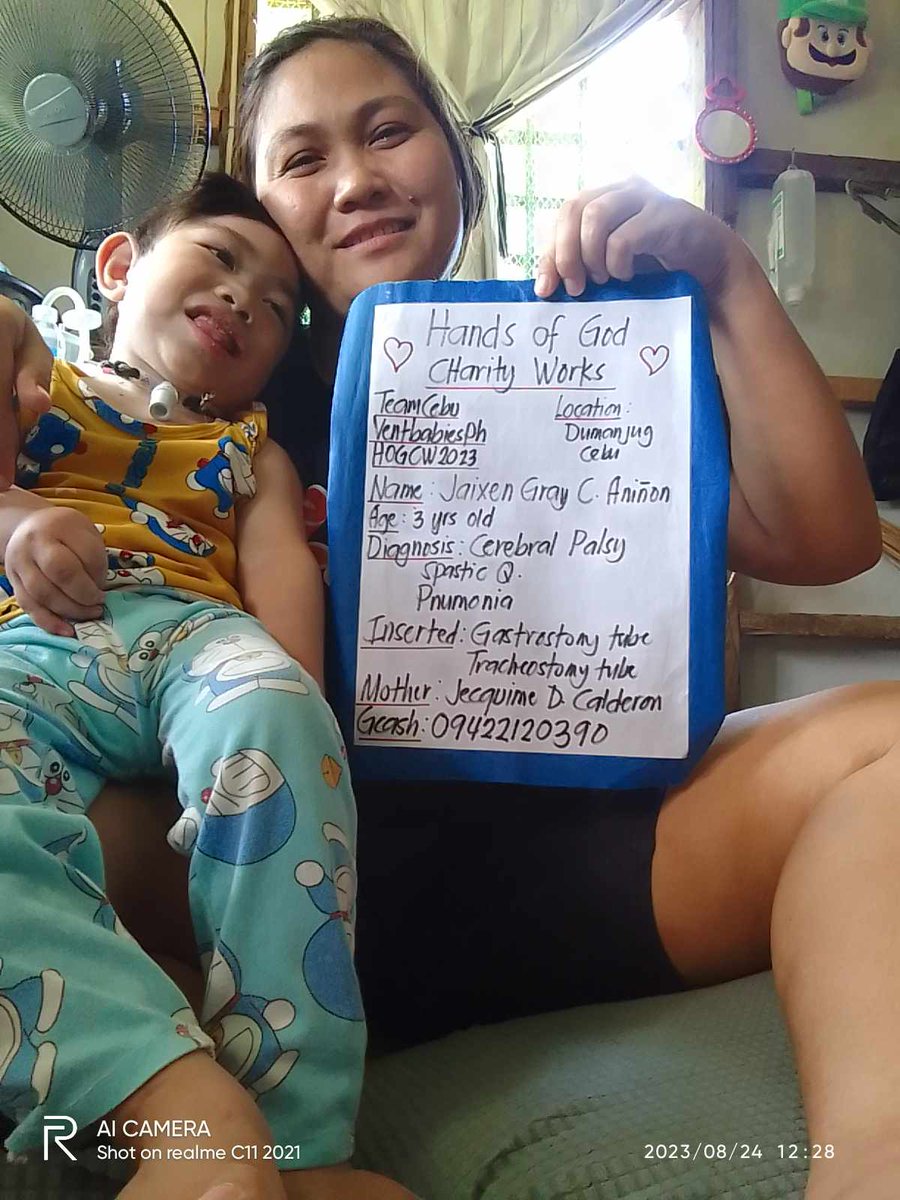 Hands of God
CHarity Works
TeamCebu
VentbabiesPh
HOGCW2023
Location:
Dumanjug
Cebu
Name: Jaixen Gray C. Aniñon
Age: 3 yrs old
Diagnosis: Cerebral Palsy
Spastic Q.
Pnumonia
Inserted: Gastrostomy tube
Tracheostomy tube
Mother: Jecquime D. Calderon
Gcash: 09422120390
R AI CAMERA
Shot on realme C11 2021
2023/08/24 12:28